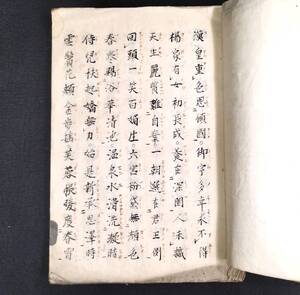 漢皇重色思傾國御宇多年求不得
楊家有女初長成養在深閨人未識
天生麗質難自棄一朝選在君王側
回頭一笑百媚生六宮粉黛無顏色
春寒賜浴華清池温泉水滑洗凝脂
侍児扶起嬌無力始是新承恩澤時
雲鬢花顏金步搖芙蓉帳暖度春宵